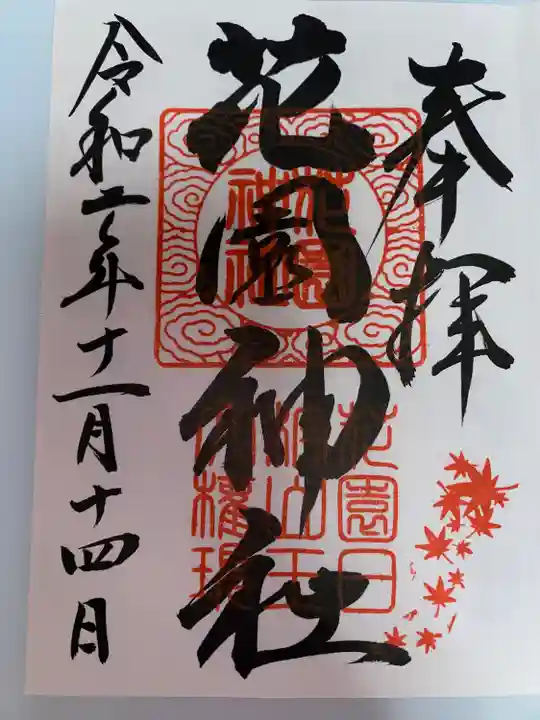 奉拝
花園神社
令和二年十一月十四日
花園
神社
花園日
枝山王
大権現